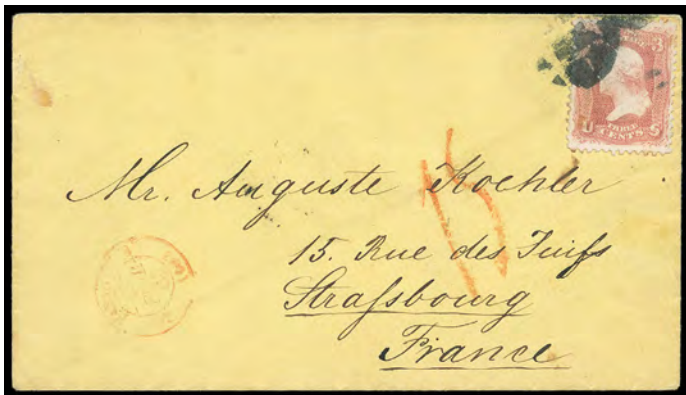 3
U THREE S
CENTS
15
Mr. Auguste Koehler
15. Rue des Juifs
Strassbourg
France